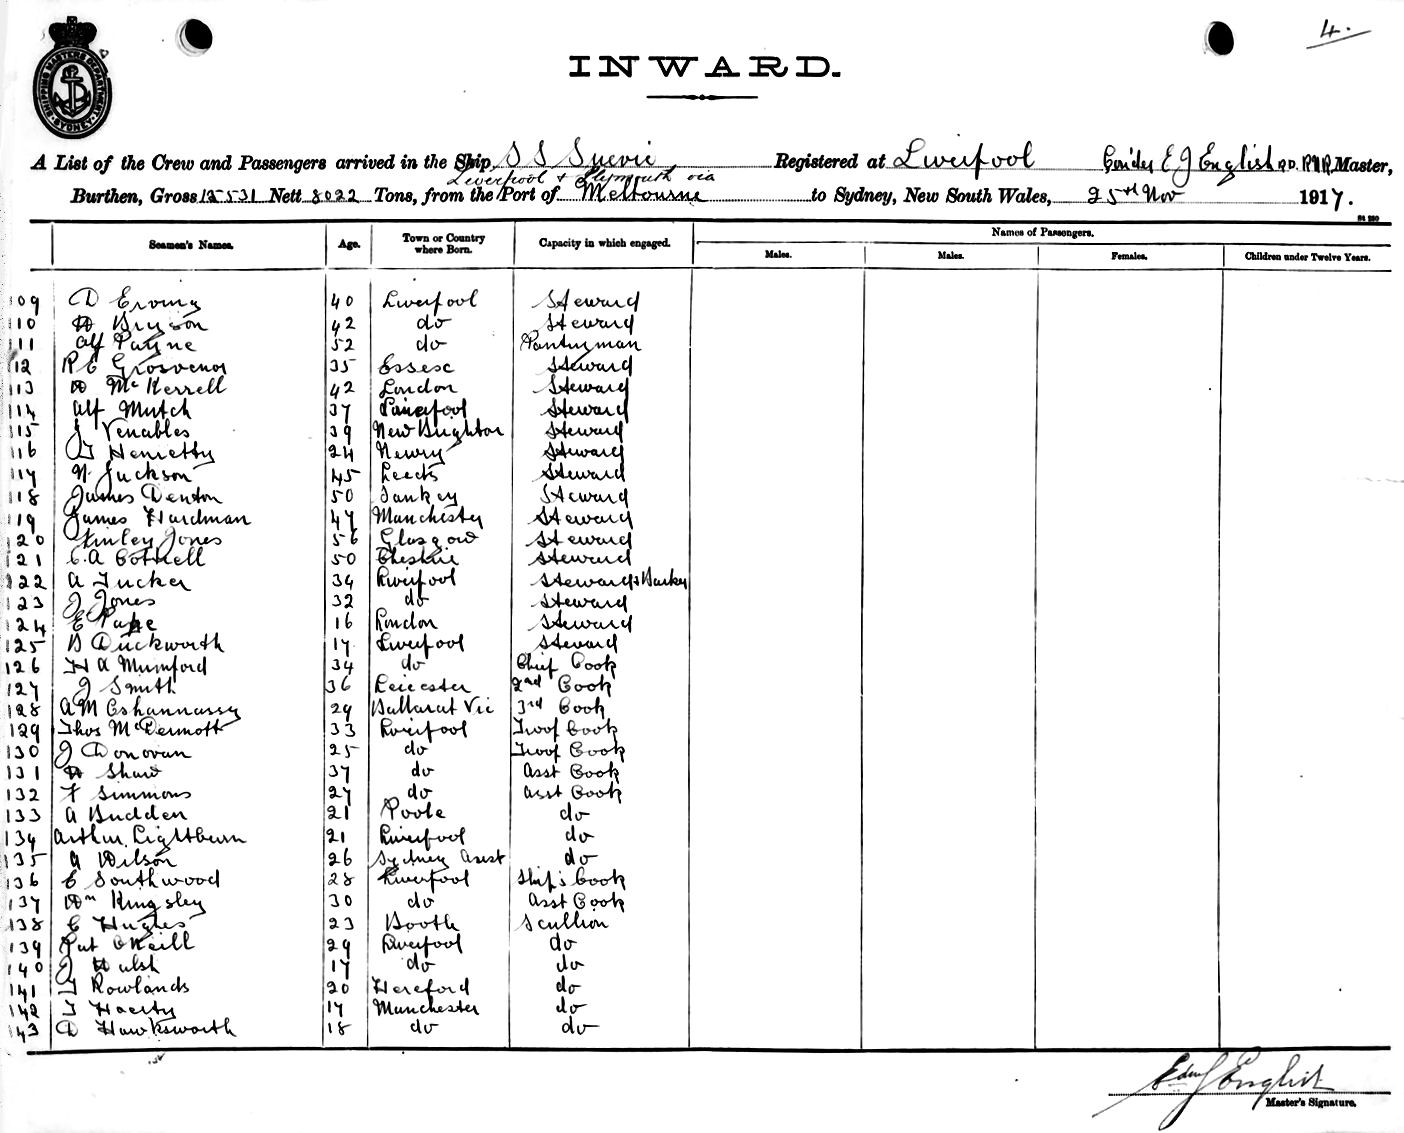 4.
SHIPPING MASTERS DEPARTMENT SYDNEY
INWARD.
A List of the Crew and Passengers arrived in the Ship S S Suevic Registered at Liverpool E J English R.D. RNR Master,
Liverpool & Plymouth via
Burthen, Gross 12531 Nett 8022 Tons, from the Port of Melbourne to Sydney, New South Wales, 25th Nov 1917.
Names of Passengers.
Seamen's Names. Age. Town or Country where Born. Capacity in which engaged. Males. Males. Females. Children under Twelve Years.
109 D Erving 40 Liverpool Steward
110 W Bryson 42 do Steward
111 Alf Payne 52 do Pantryman
112 R E Grosvenor 35 Essex Steward
113 W McKerrell 42 London Steward
114 Alf Mutch 37 Liverpool Steward
115 J Venables 39 New Brighton Steward
116 T Henretty 24 Newry Steward
117 W Jackson 45 Leeds Steward
118 James Denton 50 Sankey Steward
119 James Hardman 47 Manchester Steward
120 Stinley Jones 56 Glasgow Steward
121 C.A Cottrell 50 Cheshire Steward
122 A Tucker 34 Liverpool Steward
123 J Jones 32 do Steward
124 E Pape 16 London Steward
125 B Duckworth 17 Liverpool Steward
126 H A Mumford 34 do Chief Cook
127 J Smith 36 Leicester 2nd Cook
128 A M Eshannassy 29 Ballarat Vic 3rd Cook
129 Thos McDermott 33 Liverpool Troop Cook
130 J Donovan 25 do Troop Cook
131 W Shaw 37 do Asst Cook
132 F Simmons 27 do Asst Cook
133 A Budden 21 Poole do
134 Arthur Lightburn 21 Liverpool do
135 A Wilson 26 Sydney Aust do
136 E Southwood 28 Liverpool Ship's Cook
137 Wm Kingsley 30 do Asst Cook
138 E Hughes 23 Booth Scullion
139 Pat O'Neill 29 Liverpool do
140 J Walsh 17 do do
141 T Rowlands 20 Hereford do
142 T Haerty 17 Manchester do
143 D Hawksworth 18 do do
Edw J English
Master's Signature.